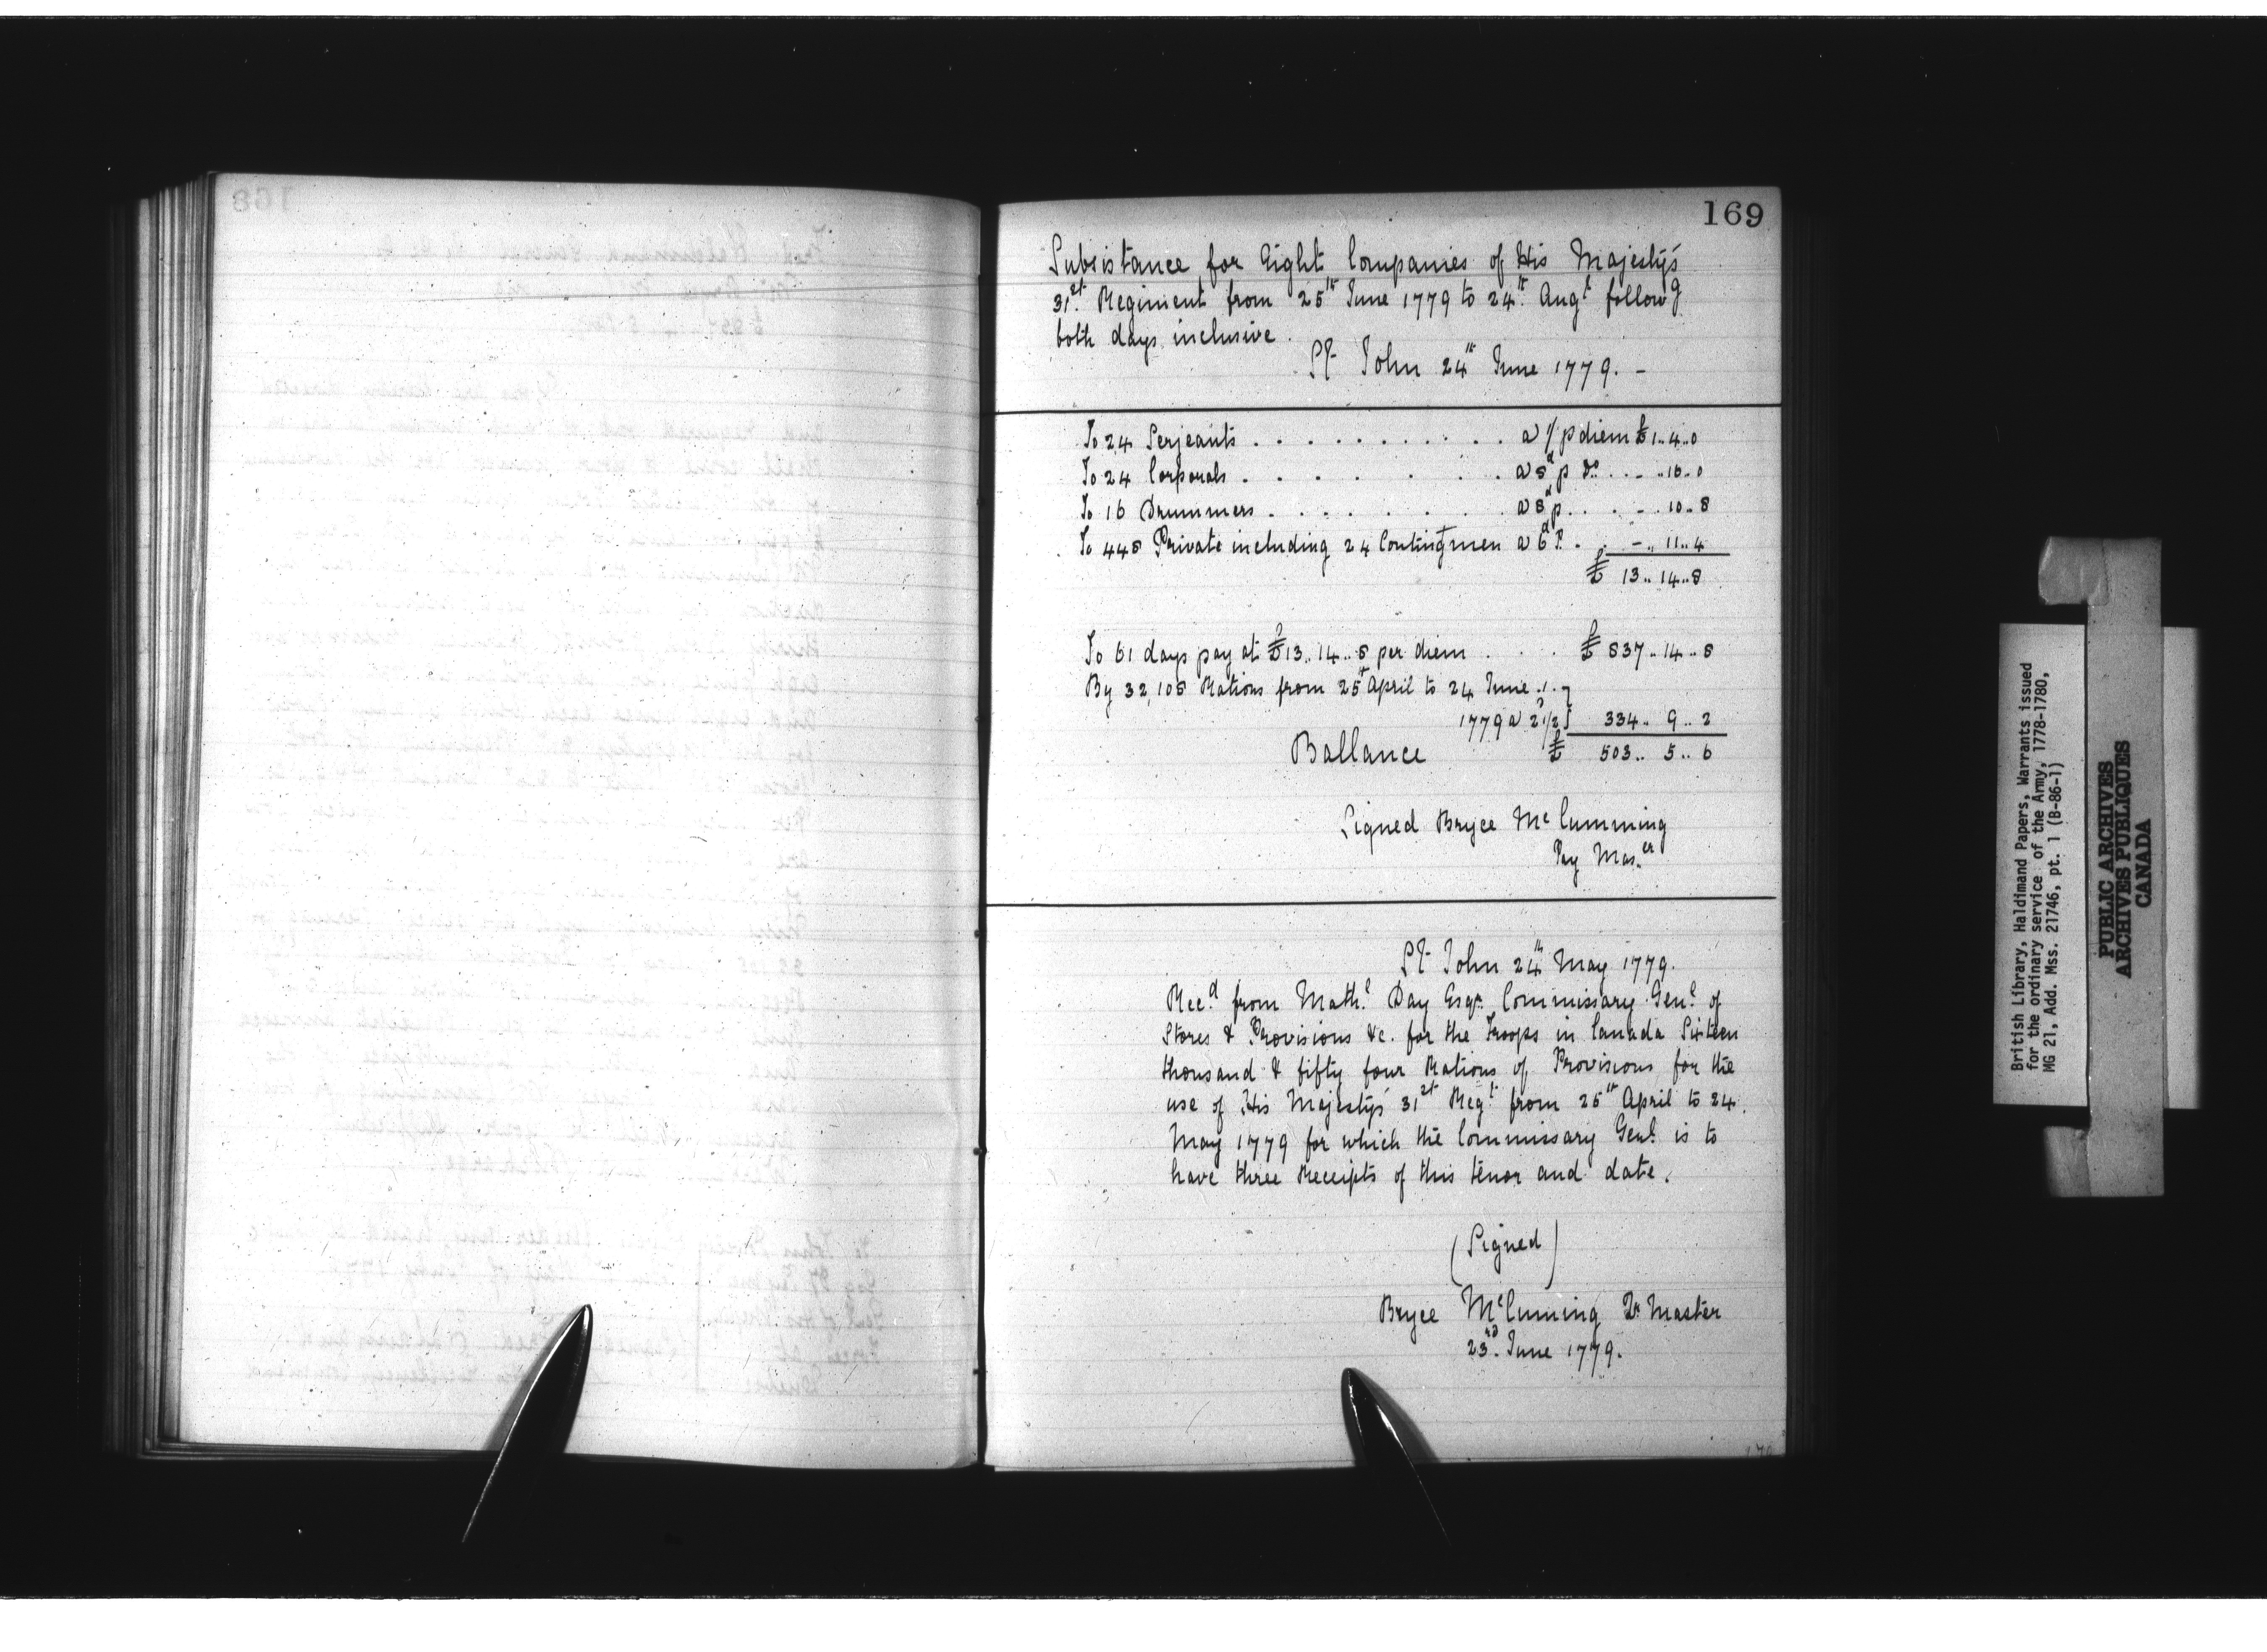 169
Subsistance for Eight Companies of His Majesty's
31st Regiment from 25th June 1779 to 24th Augt followg
both days inclusive.
St John 24th June 1779. -
To 24 Serjeants . . . . . . . . . . . a 1/ p diem £1..4..0
To 24 Corporals . . . . . . . a 8d p Do. . . - ..16..0
To 16 Drummers . . . . . . . . a 8d p. . . - .. 10..8
To 448 Private including 24 Contingt men a 6d P. . . -.. 11..4
£ 13.. 14..8
To 61 days pay at £13..14..8 per diem . . . £ 837..14..8
By 32,108 Rations from 25th April to 24 June
1779 a 2 1/2 334.. 9.. 2
Ballance £ 503.. 5.. 6
Signed Bryce Mc Cumming
Pay Mas.er
St John 24th May 1779.
Recd from Nathl Day Esqr. Commissary Genl of
Stores & Provisions &c. for the Troops in Canada Sixteen
thousand & fifty four Rations of Provisions for the
use of His Majesty's 31st Regt from 25th April to 24.
May 1779 for which the Commissary Genl. is to
have three Receipts of this tenor and date.
(Signed)
Bryce McCuming Qr Master
23rd June 1779.
British Library, Haldimand Papers, Warrants issued
for the ordinary service of the Army, 1778-1780,
MG 21, Add. Mss. 21746, pt. 1 (B-86-1)
PUBLIC ARCHIVES
ARCHIVES PUBLIQUES
CANADA